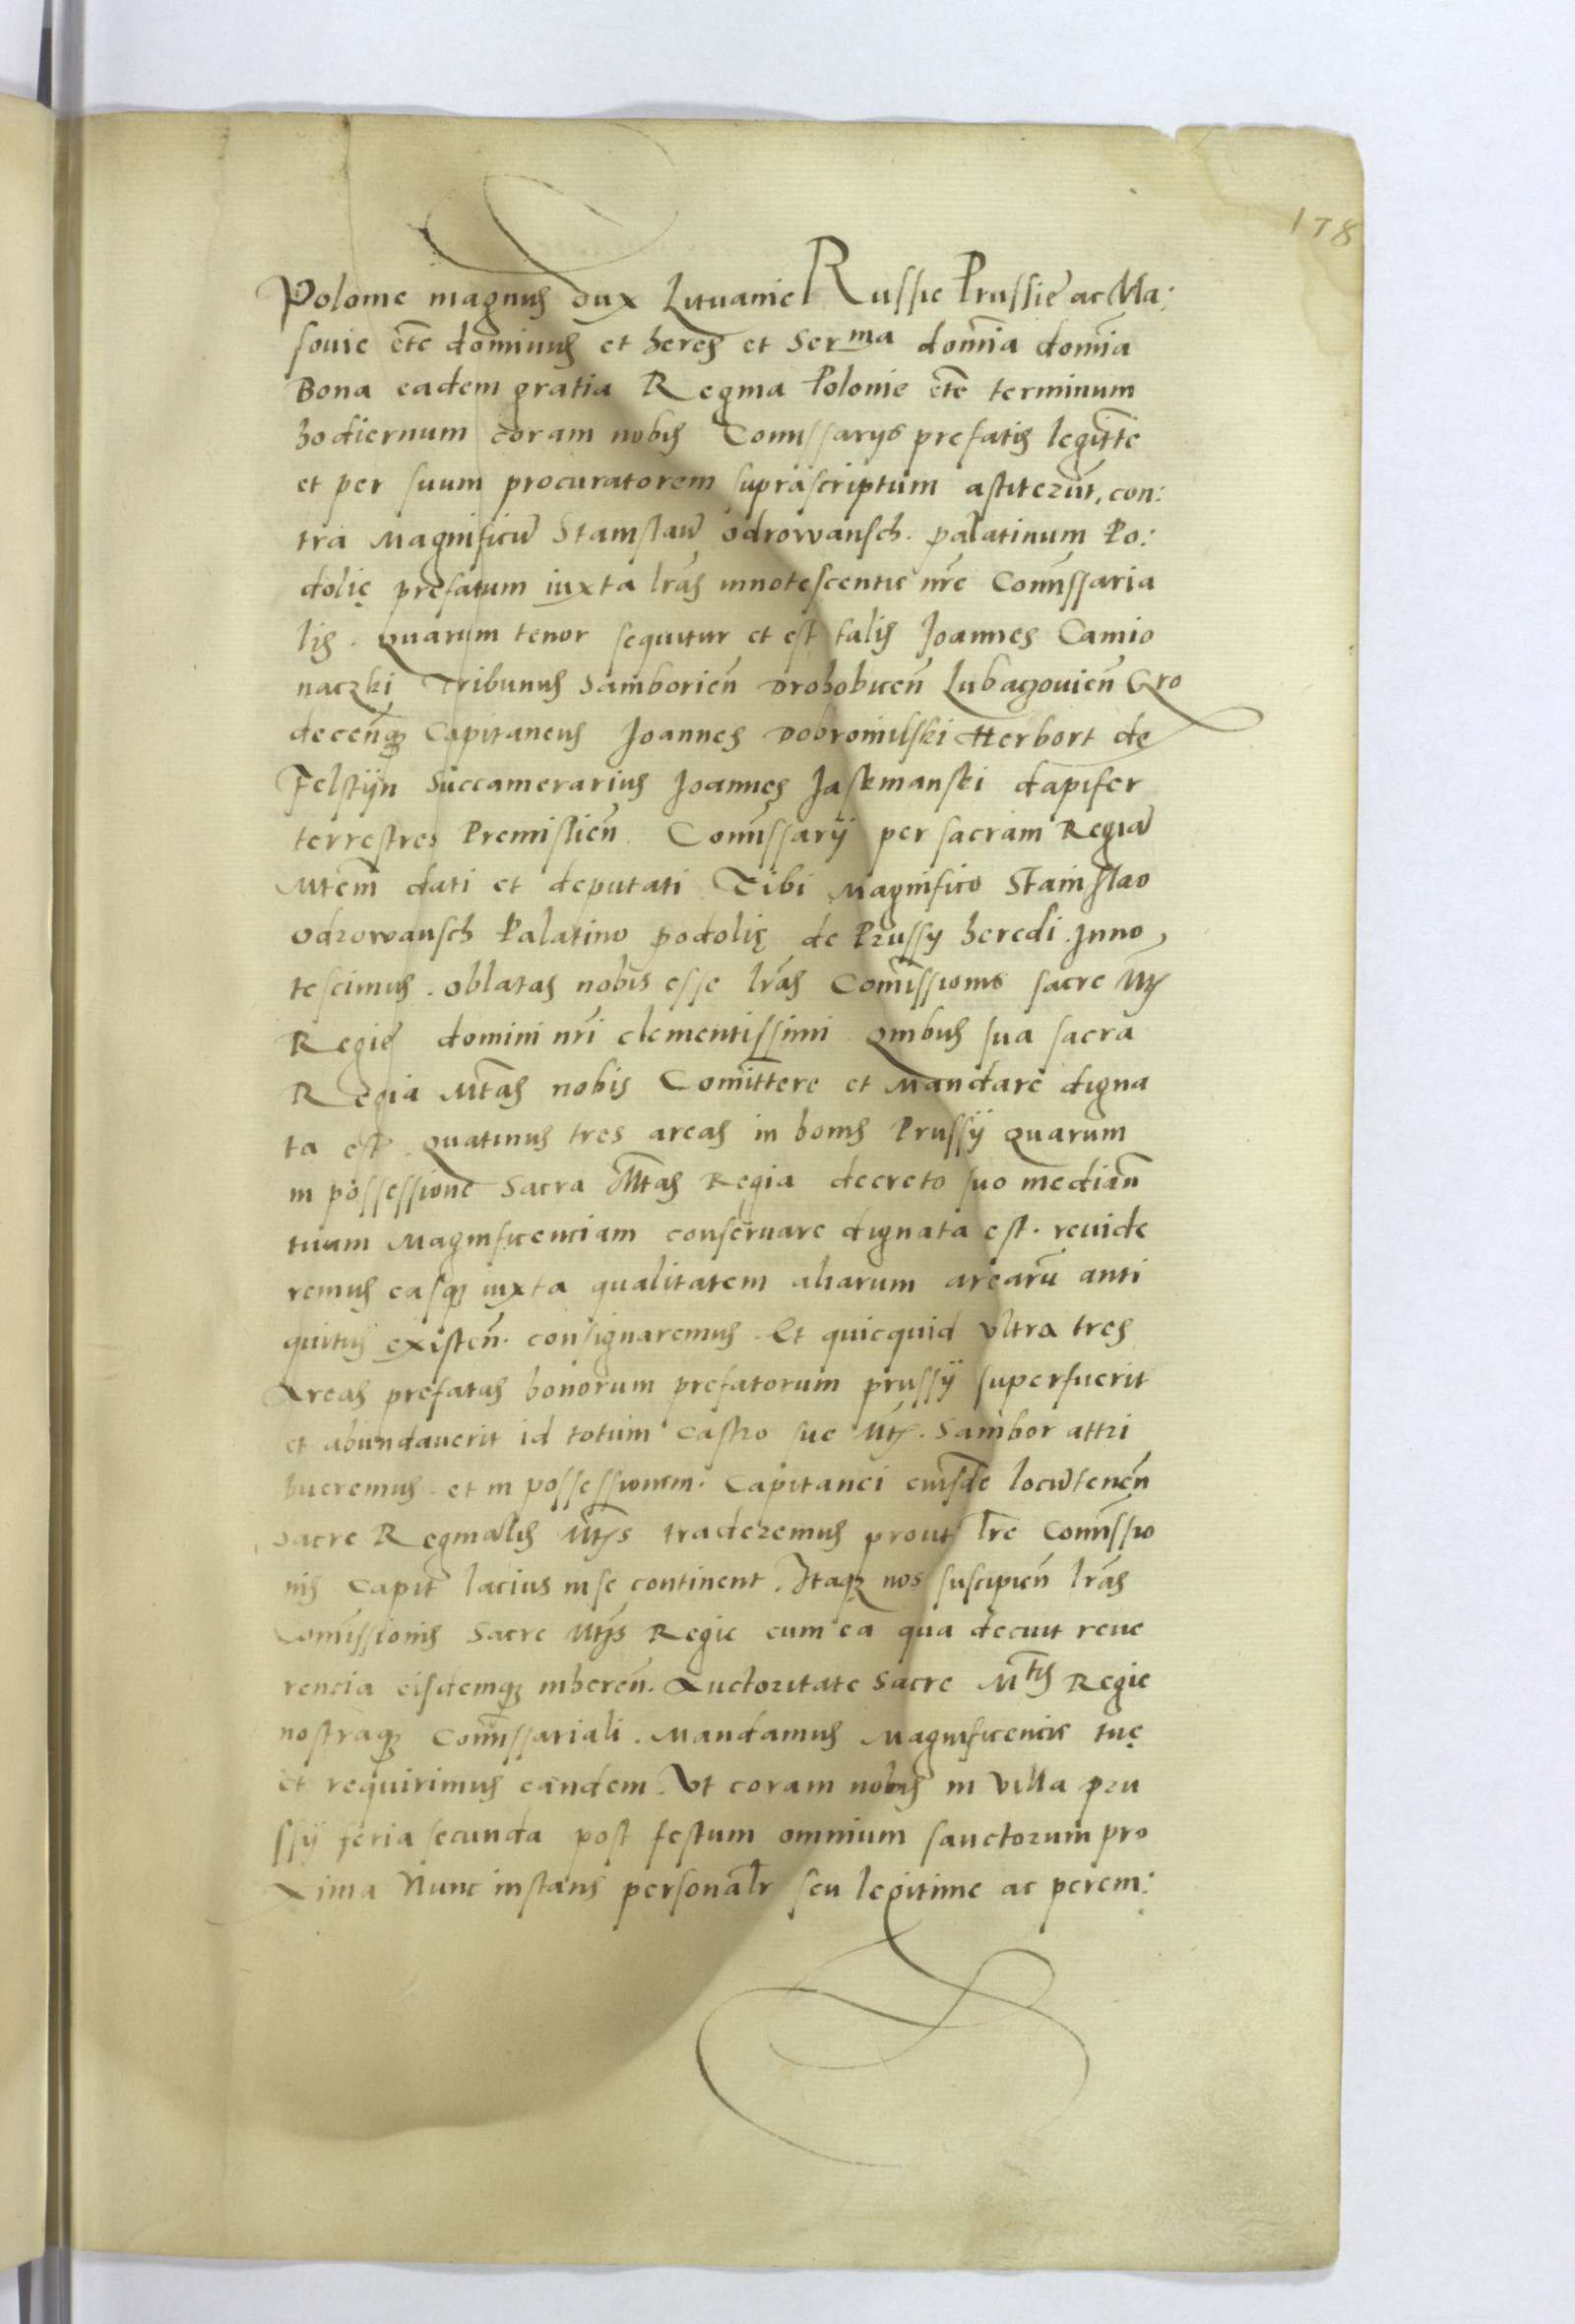 178
Polonie magnus dux Lituanie Russie Prussie ac Ma:
sovie etc̃ dominus et heres et Ser^ma domĩa domĩa
Bona eadem gratia Regina Polonie etc̃ terminum
hodiernum coram nobis Com̃issarys prefatis legitĩe
et per suum procuratorem suprascriptum astiterũt, con:
tra Magnificũ Stanislaũ Odrowansch. palatinum Po:
dolię prefatum iuxta lr̃as innotescentie nr̃e Com̃issaria
lis. Quarum tenor sequitur et est talis Joannes Camio
naczki Tribunus Samborieñ Drohobiceñ Lubaczovieñ Gro
deceñq3 Capitaneus Joannes Dobromilski Herbort de
Felstijn Succamerarius Joannes Jaskmanski dapifer
terrestres Premislieñ Com̃issarij per sacram Regiã
Mtem̃ dati et deputati Tibi Magnifico Stanislao
Odrowansch Palatino podolię de Prussy heredi. Inno,
tescimus. Oblatas nobis esse lr̃as Com̃issionis sacre Mt̃s
Regie domini nr̃i clementissimi Quibus sua sacra
Regia Mt̃as nobis Com̃ittere et Mandare digna
ta est. Quatinus tres areas in bonis Prussÿ Quarum
in possessione Sacra Mt̃as Regia decreto suo median̄
tuam Magnificenciam conservare dignata est. revide
remus easq3 iuxta qualitatem aliarum arearũ anti
quitus existeñ. consignaremus. Et quicquid Ultra tres
Areas prefatas bonorum prefatorum prussÿ superfuerit
et abundaverit id totum castro sue Mt̃s. Sambor attri
bueremus. et in possessionem. Capitanei eiusdẽ locũteneñ
Sacre Reginalis Mt̃ıs traderemus prout lr̃e Com̃issio
nis Capit̃ lacius in se continent. Itaq3 nos suscipieñ lr̃as
Com̃issionis Sacre Mt̃ıs Regie cum ea qua decuit reve
rencia eisdemq3 inhereñ. Auctoritate Sacre M^tis Regie
nostraq3 Com̃issariali. Mandamus Magnificencie tuę
et requirimus eandem. Ut coram nobis in Villa pru
ssÿ feria secunda post festum omnium sanctorum pro
Xima Nunc instans personalr̃ seu legitime ac perem: